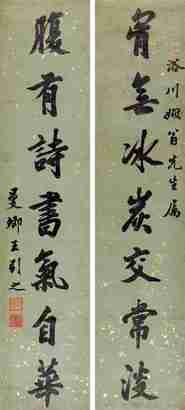 川翁先生屬
胷無冰炭交常淡
腹有詩書氣自華
曼卿王引之